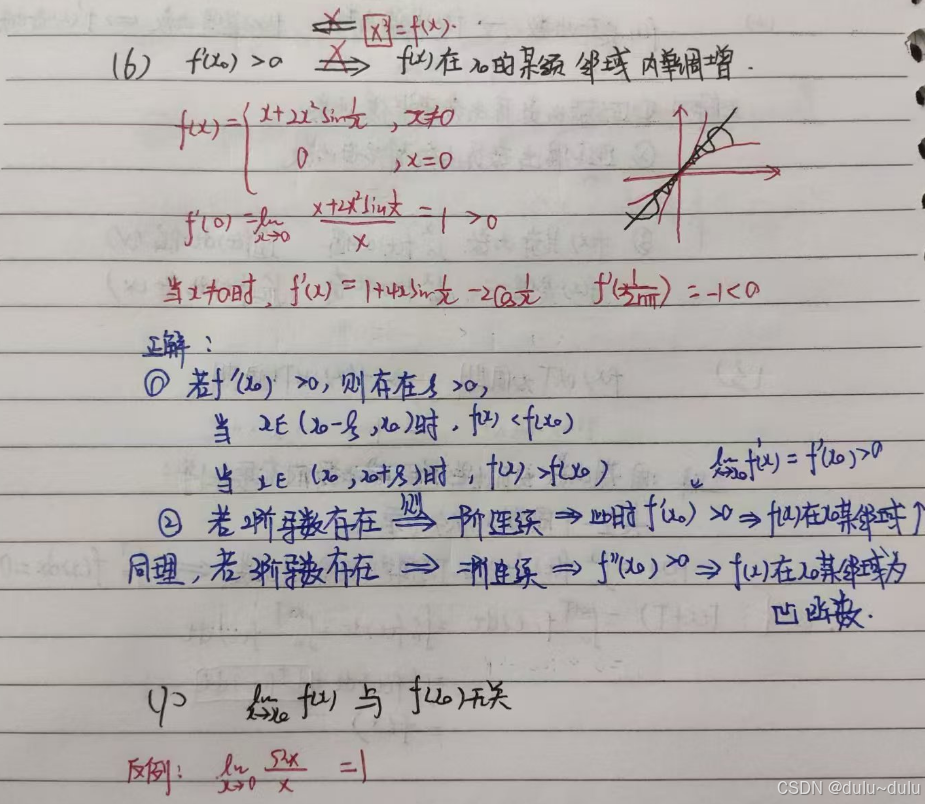 ⇍ x³ = f(x).
(6) f'(x₀) > 0 ⇏ f(x)在x₀的某领邻域内单调增.
f(x) = { x+2x²sin1/x , x≠0
0 , x=0
f'(0) = lim x→0 (x+2x²sin1/x)/x = 1 > 0
当x≠0时, f'(x) = 1+4xsin1/x -2cos1/x f'(±1/2nπ) = -1<0
正解:
① 若f'(x₀) >0, 则存在δ>0,
当 x∈(x₀-δ, x₀)时, f(x) <f(x₀)
当 x∈ (x₀, x₀+δ)时, f(x) >f(x₀)
lim x→x₀ f'(x) = f'(x₀) >0
② 若2阶导数存在 则⇒ 一阶连续 ⇒ 此时f'(x₀) >0 ⇒ f(x)在x₀某邻域↑
同理, 若3阶导数存在 ⇒ 二阶连续 ⇒ f''(x₀) >0 ⇒ f(x)在x₀某邻域为
凹函数.
(7) lim x→x₀ f(x) 与 f(x₀)无关
反例: lim x→0 sinx/x = 1
CSDN @dulu~dulu